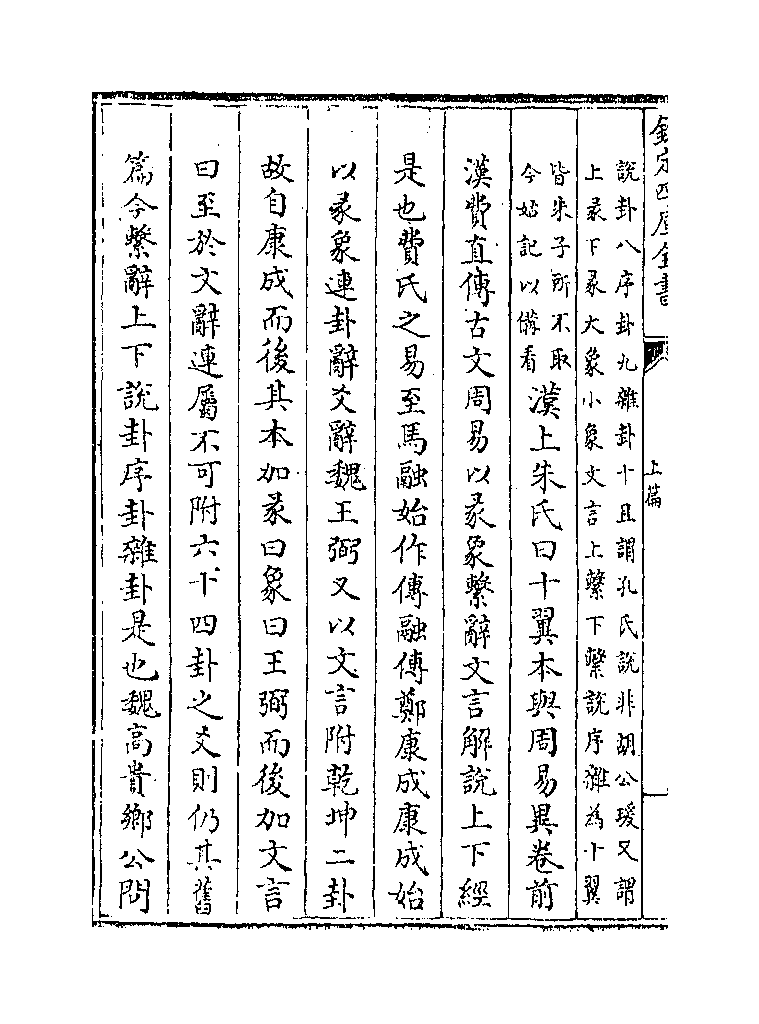 欽定四庫全書
上篇
說卦八序卦九雜卦十且謂孔氏說非胡公瑗又謂
上彖下彖大象小象文言上繫下繫說序雜為十翼
皆朱子所不取
今姑記以備看
漢上朱氏曰十翼本與周易異卷前
漢費直傳古文周易以彖象繫辭文言解說上下經
是也費氏之易至馬融始作傳融傳鄭康成康成始
以彖象連卦辭爻辭魏王弼又以文言附乾坤二卦
故自康成而後其本加彖曰象曰王弼而後加文言
曰至於文辭連屬不可附六十四卦之爻則仍其舊
篇今繫辭上下說卦序卦雜卦是也魏高貴鄉公問